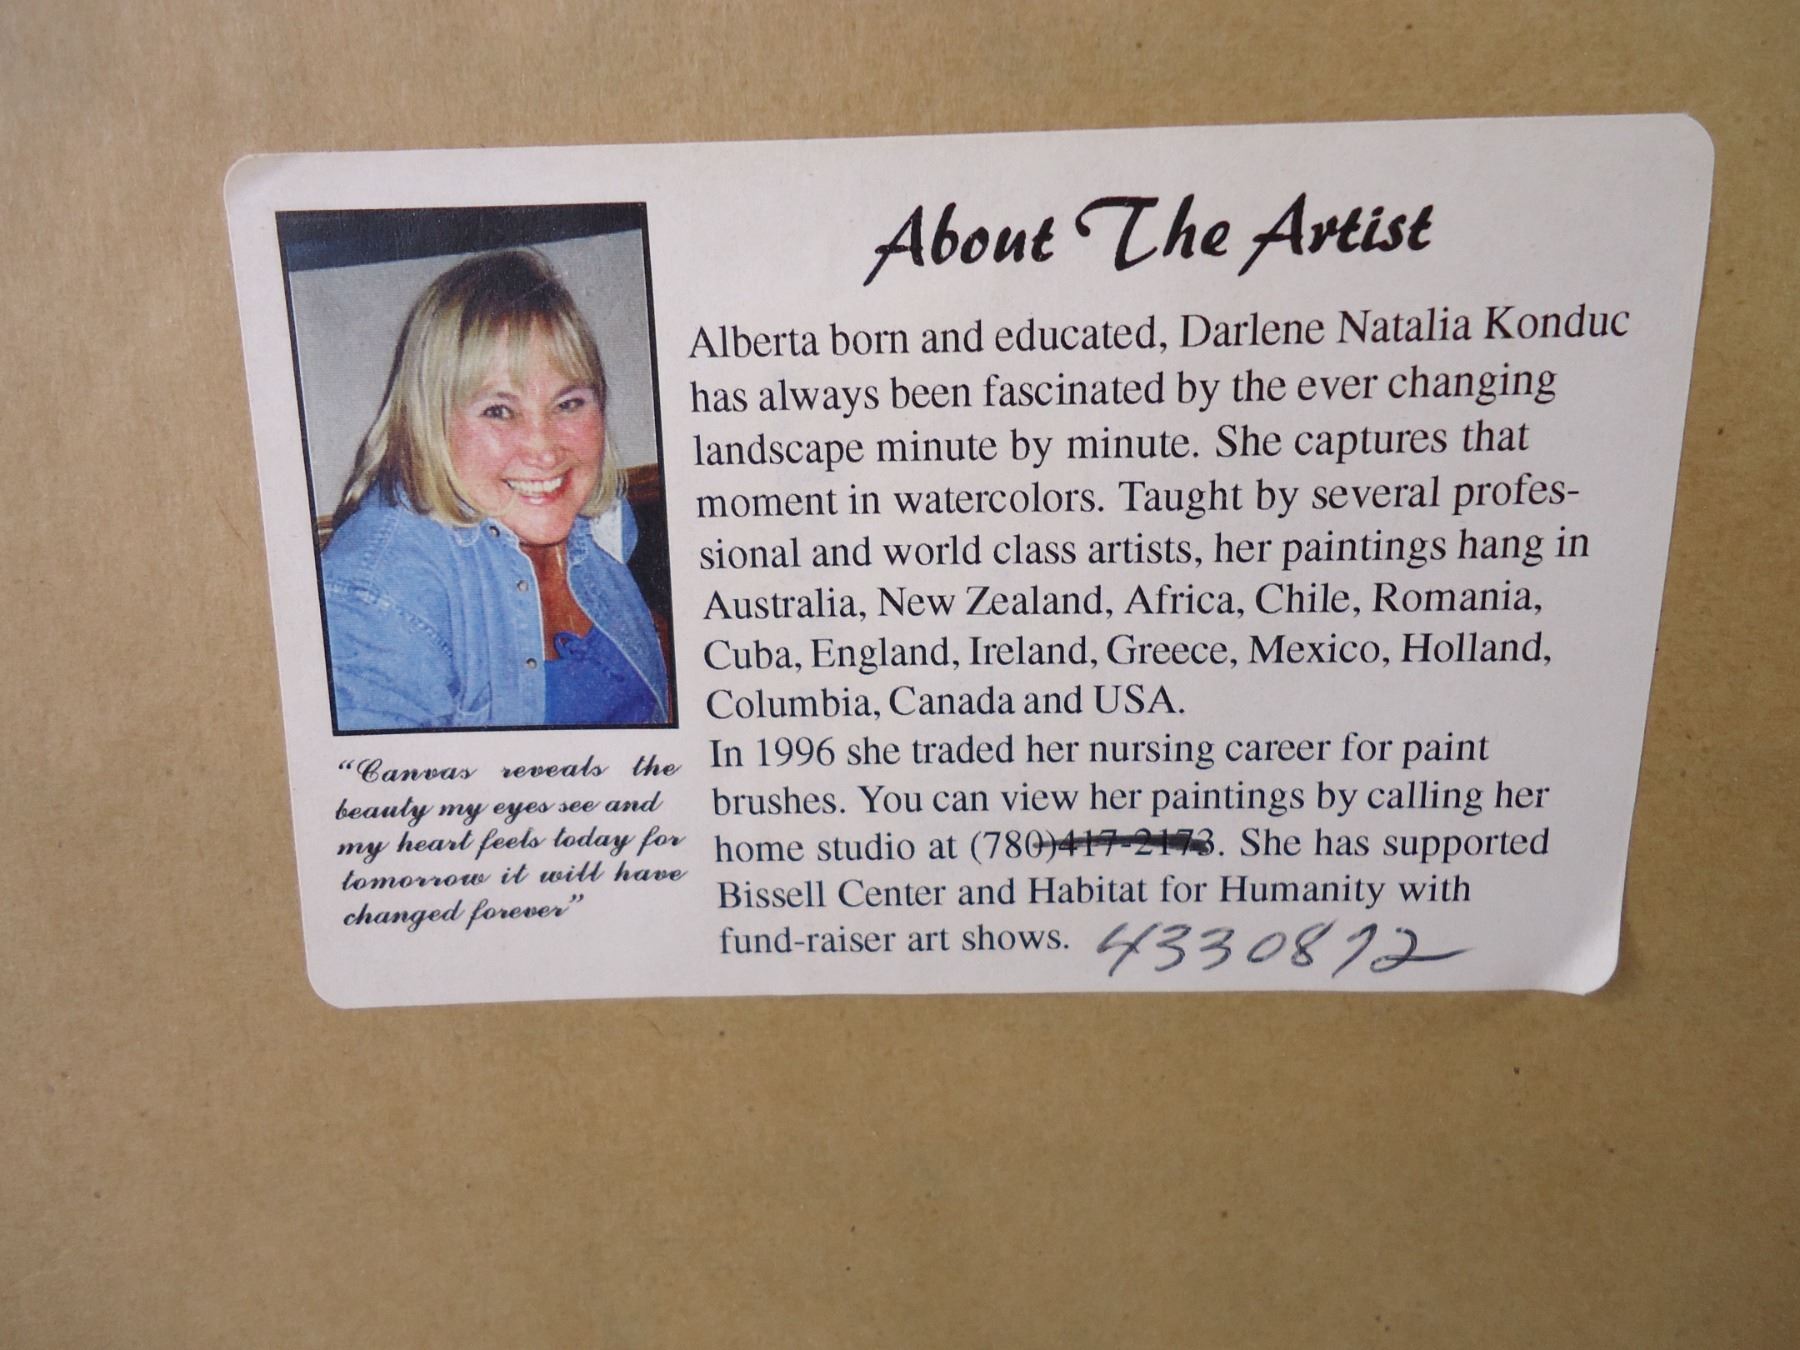 About The Artist
Alberta born and educated, Darlene Natalia Konduc
has always been fascinated by the ever changing
landscape minute by minute. She captures that
moment in watercolors. Taught by several profes-
sional and world class artists, her paintings hang in
Australia, New Zealand, Africa, Chile, Romania,
Cuba, England, Ireland, Greece, Mexico, Holland,
Columbia, Canada and USA.
In 1996 she traded her nursing career for paint
brushes. You can view her paintings by calling her
home studio at (780)417-2173. She has supported
Bissell Center and Habitat for Humanity with
fund-raiser art shows. 4330872
"Canvas reveals the
beauty my eyes see and
my heart feels today for
tomorrow it will have
changed forever"